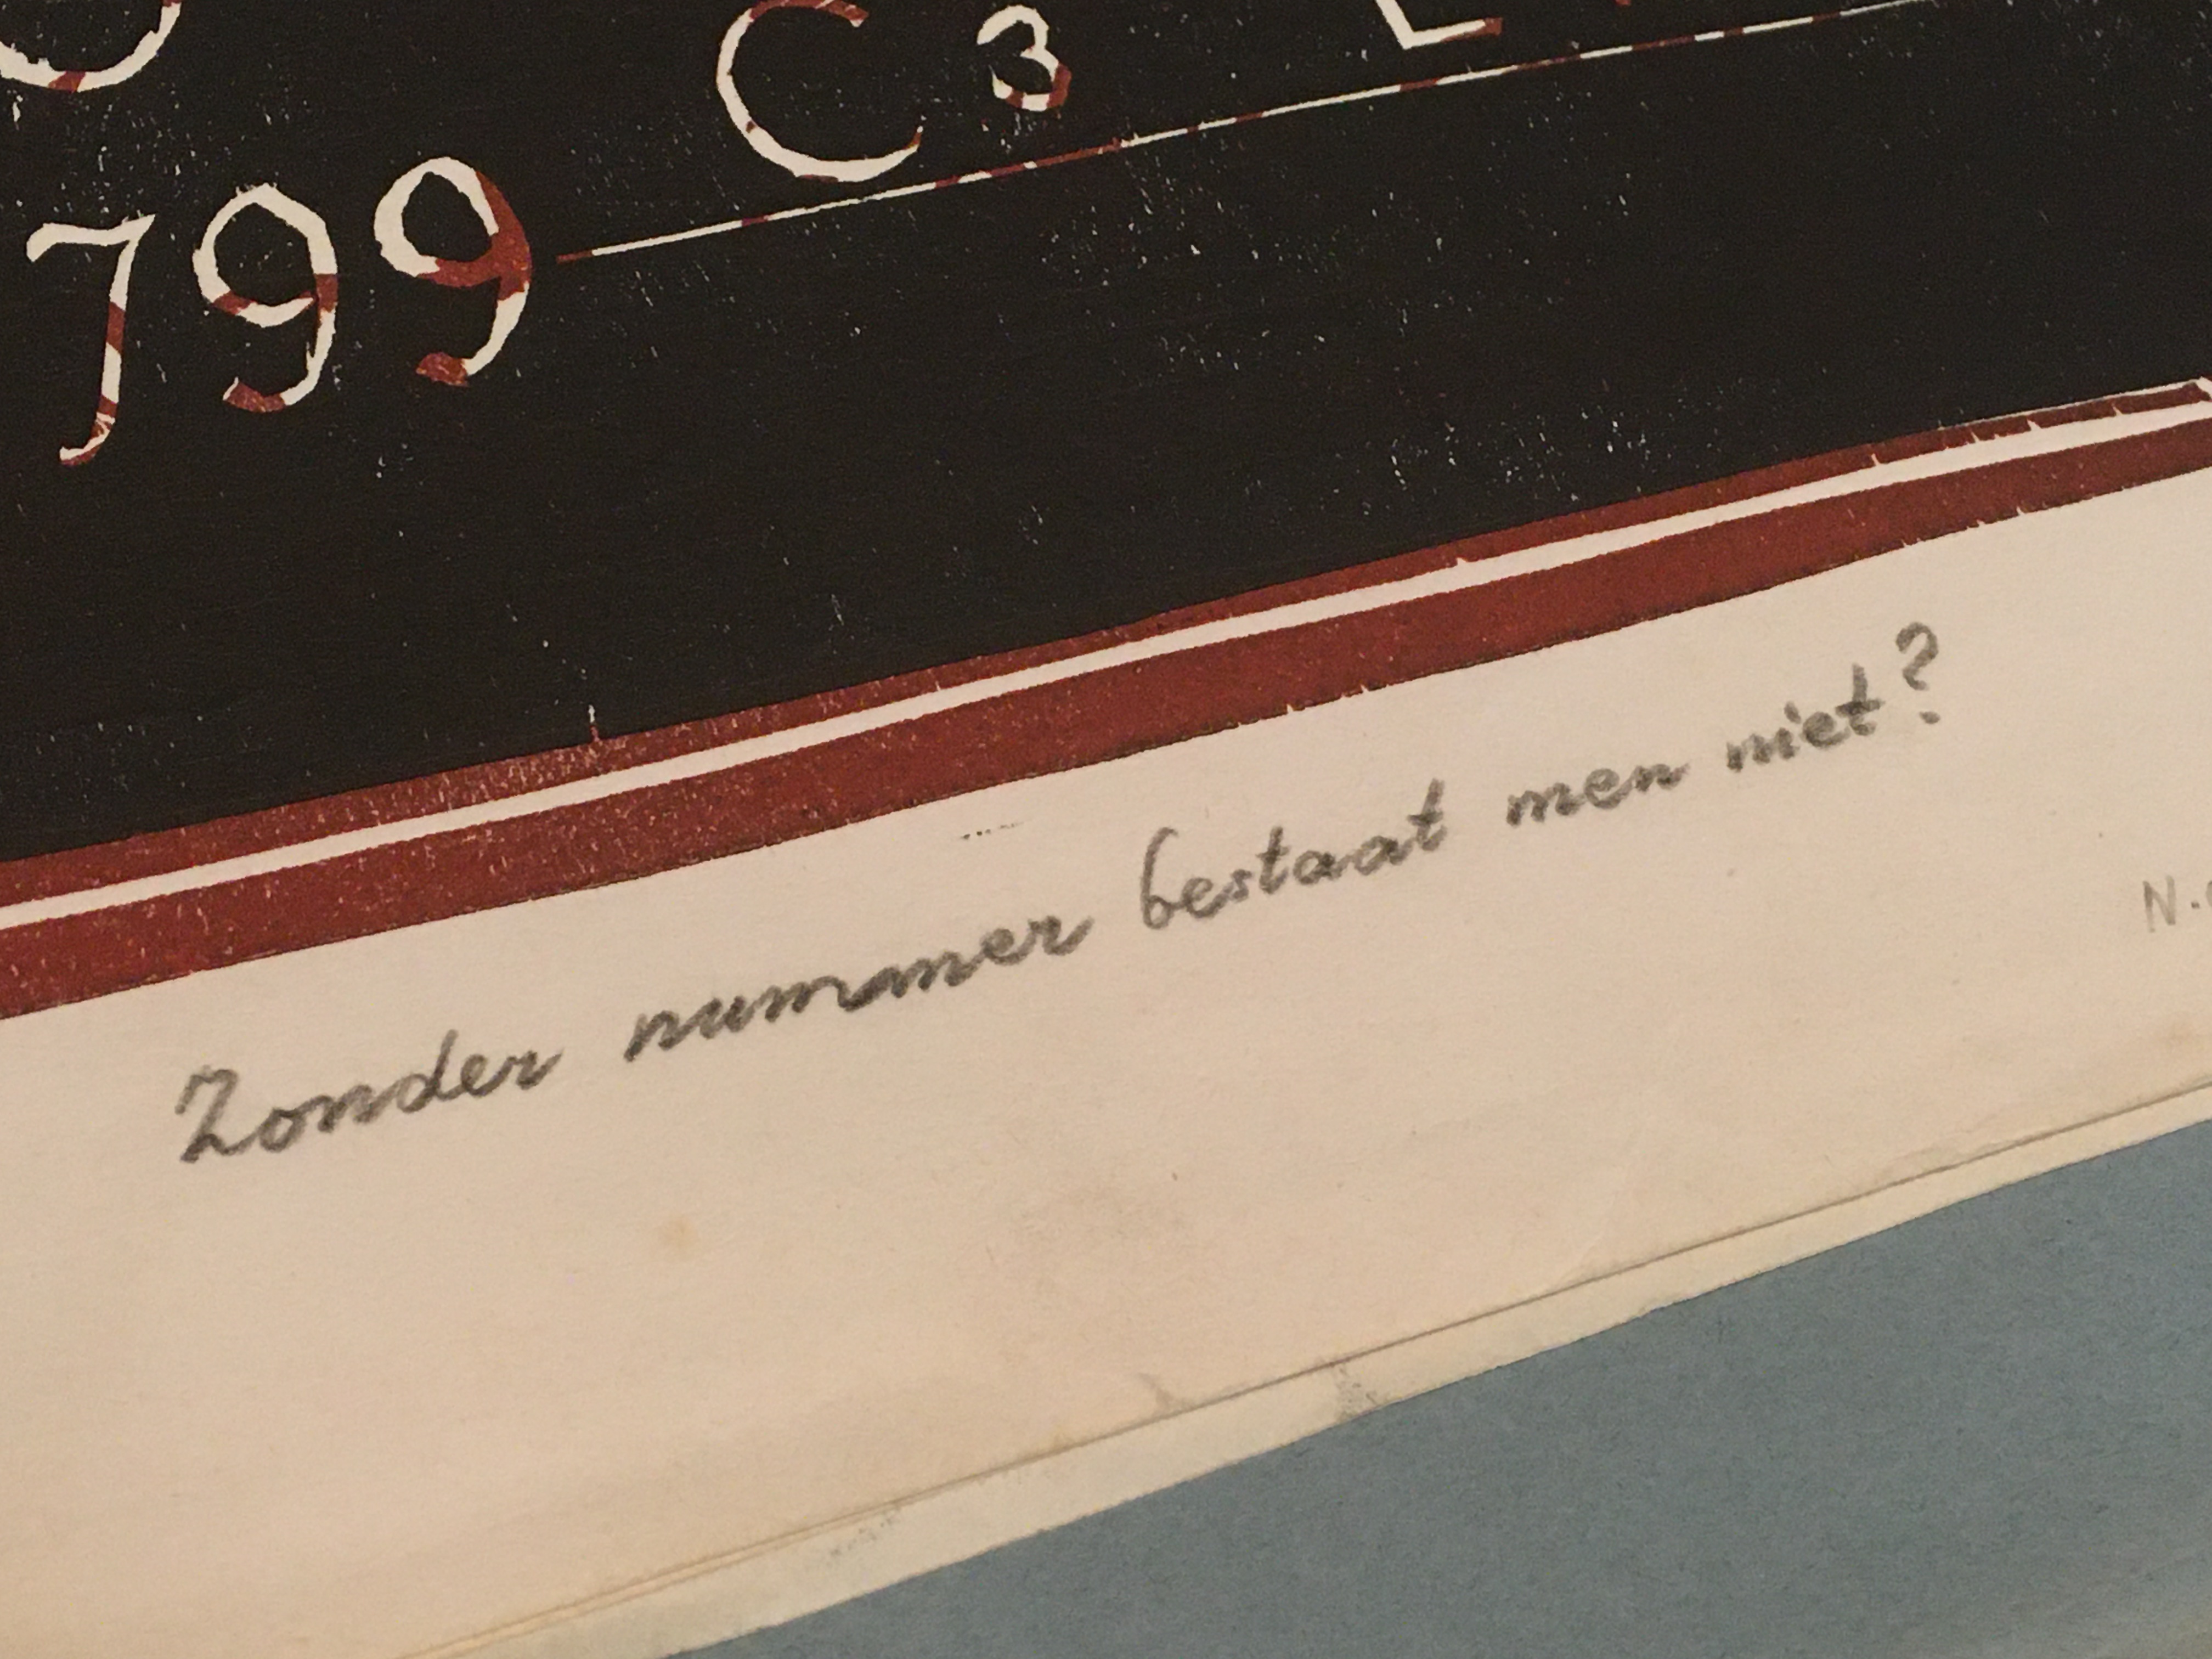 C³
799
Zonder nummer bestaat men niet?
N.